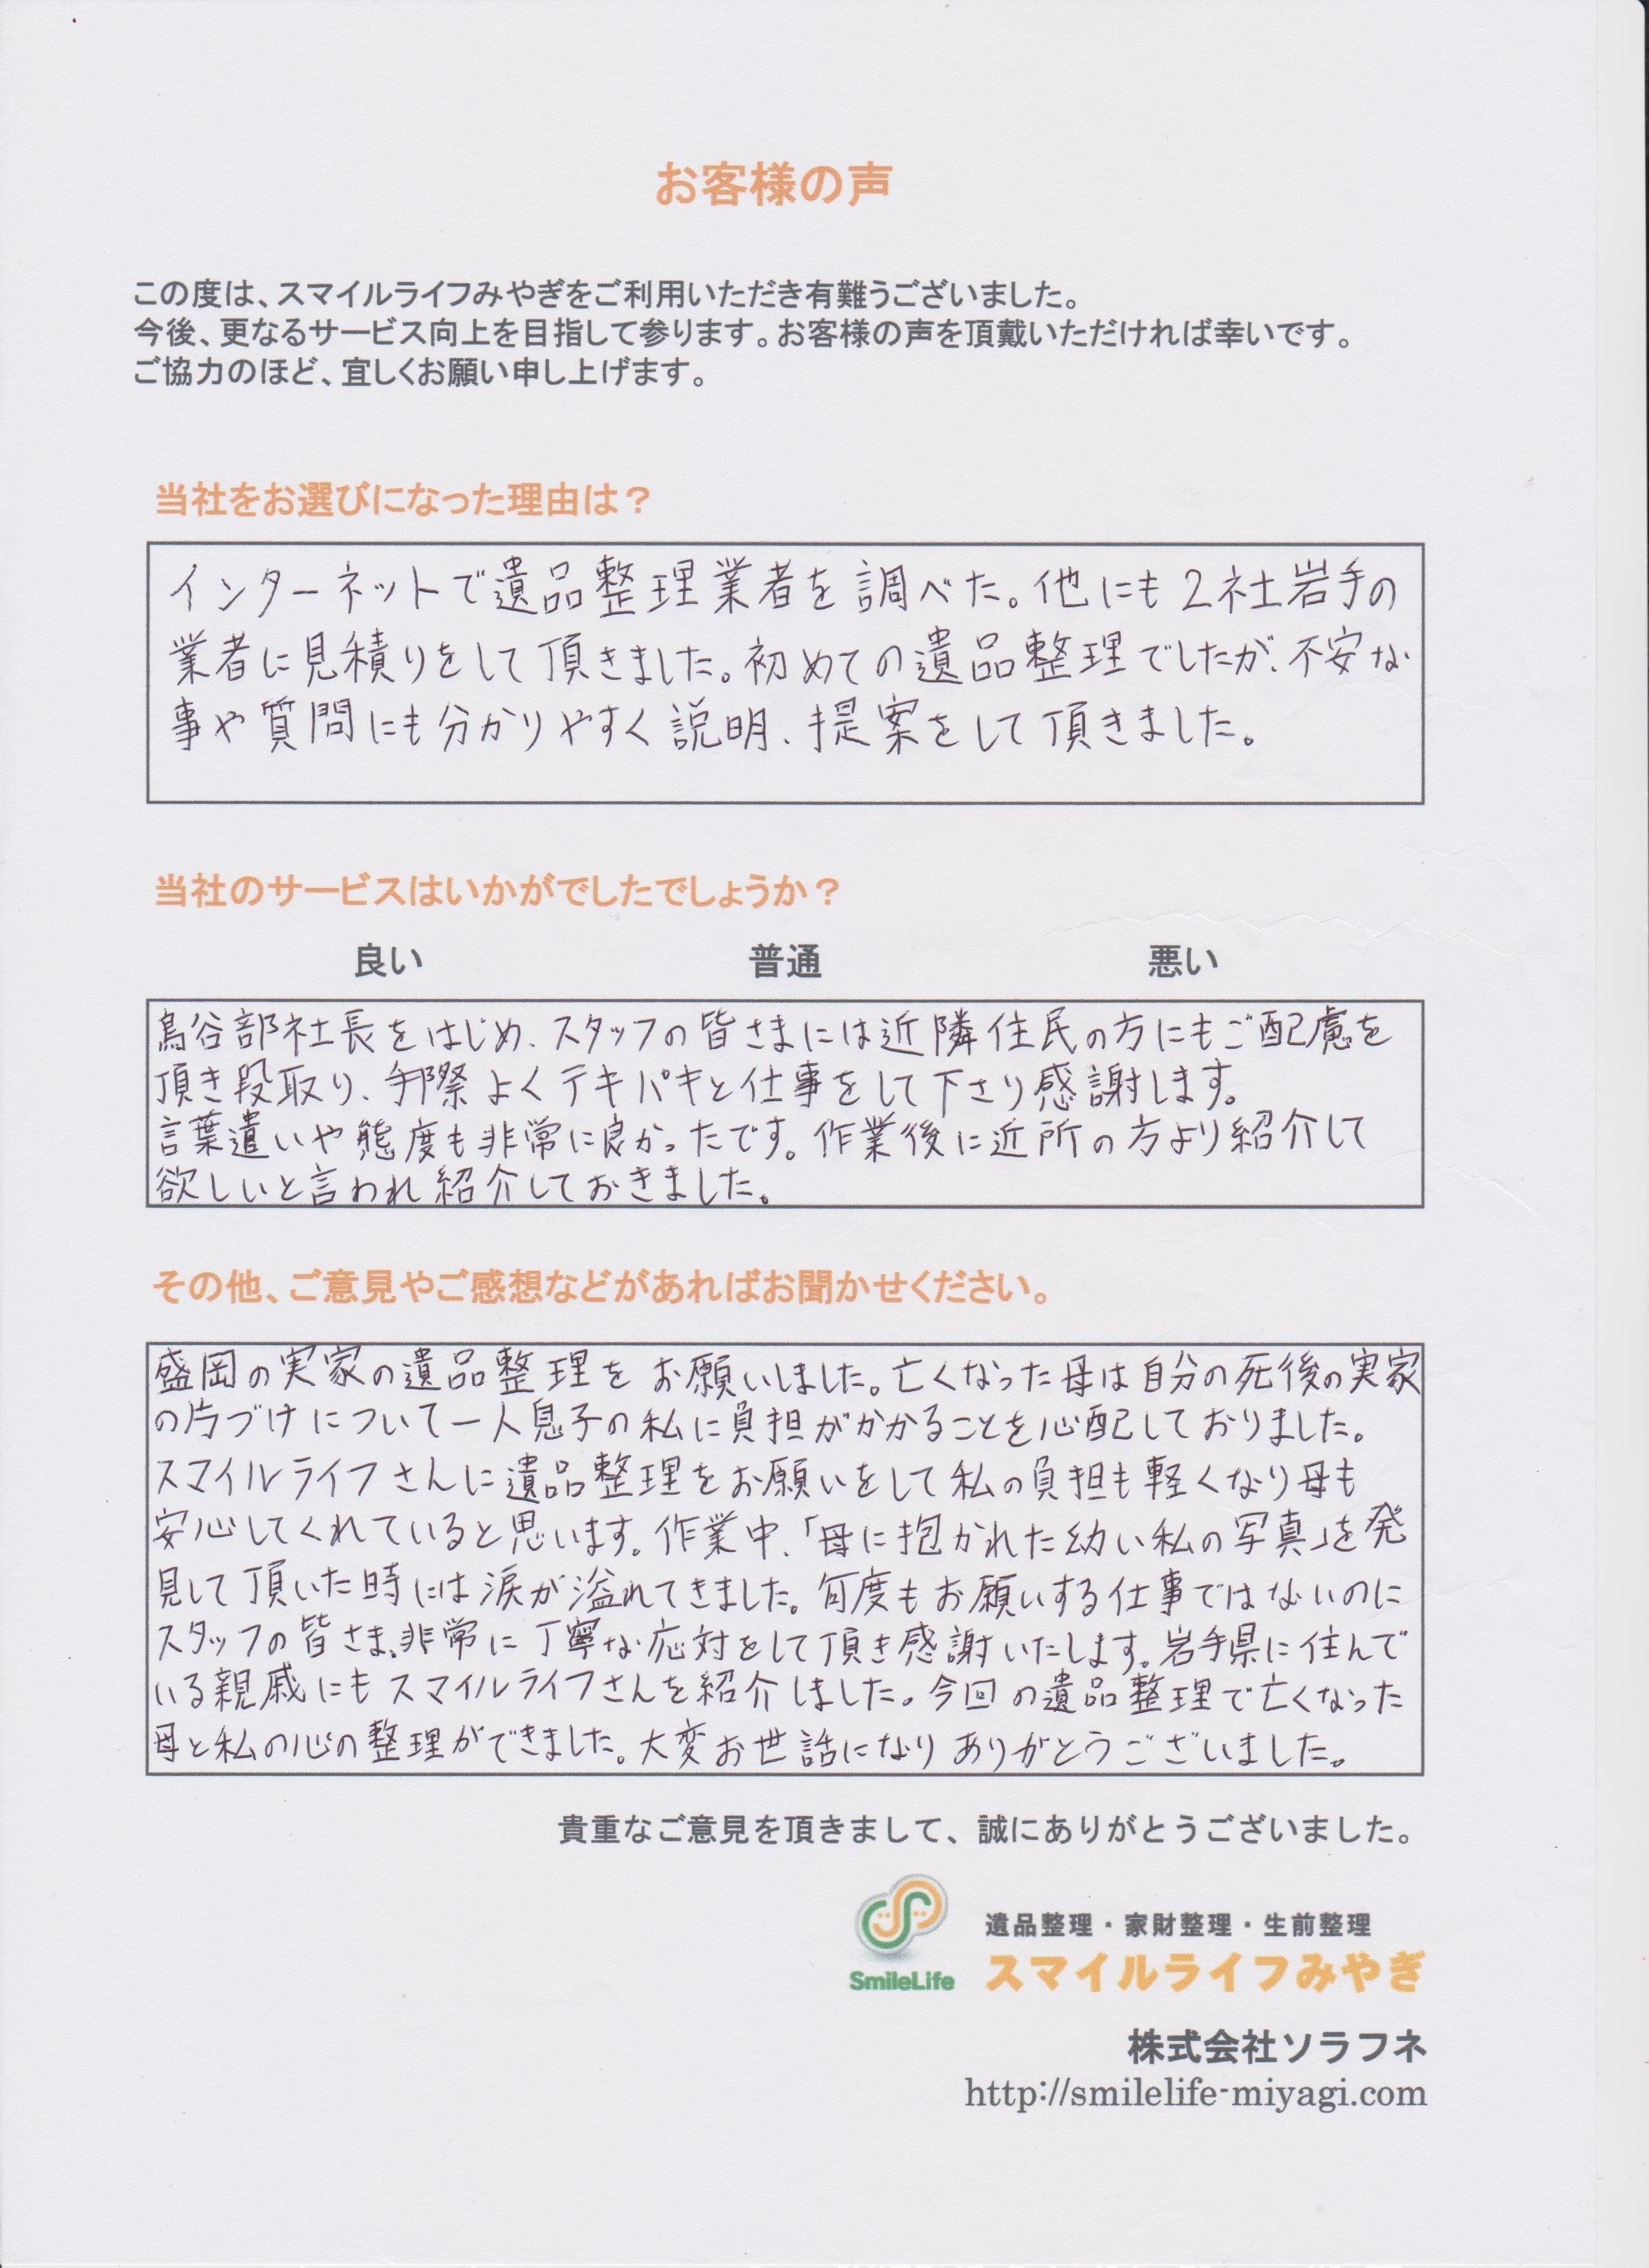 お客様の声
この度は、スマイルライフみやぎをご利用いただき有難うございました。
今後、更なるサービス向上を目指して参ります。お客様の声を頂戴いただければ幸いです。
ご協力のほど、宜しくお願い申し上げます。
当社をお選びになった理由は？
インターネットで遺品整理業者を調べた。他にも2社岩手の
業者に見積りをして頂きました。初めての遺品整理でしたが、不安な
事や質問にも分かりやすく説明、提案をして頂きました。
当社のサービスはいかがでしたでしょうか？
良い 普通 悪い
鳥谷部社長をはじめ、スタッフの皆さまには近隣住民の方にもご配慮を
頂き段取り、手際よくテキパキと仕事をして下さり感謝します。
言葉遣いや態度も非常に良かったです。作業後に近所の方より紹介して
欲しいと言われ紹介しておきました。
その他、ご意見やご感想などがあればお聞かせください。
盛岡の実家の遺品整理をお願いしました。亡くなった母は自分の死後の実家
の片づけについて一人息子の私に負担がかかることを心配しておりました。
スマイルライフさんに遺品整理をお願いをして私の負担も軽くなり母も
安心してくれていると思います。作業中、「母に抱かれた幼い私の写真」を発
見して頂いた時には涙が溢れてきました。何度もお願いする仕事ではないのに
スタッフの皆さま、非常に丁寧な応対をして頂き感謝いたします。岩手県に住んで
いる親戚にもスマイルライフさんを紹介しました。今回の遺品整理で亡くなった
母と私の心の整理ができました。大変お世話になりありがとうございました。
貴重なご意見を頂きまして、誠にありがとうございました。
遺品整理・家財整理・生前整理
SmileLife スマイルライフみやぎ
株式会社ソラフネ
http://smilelife-miyagi.com